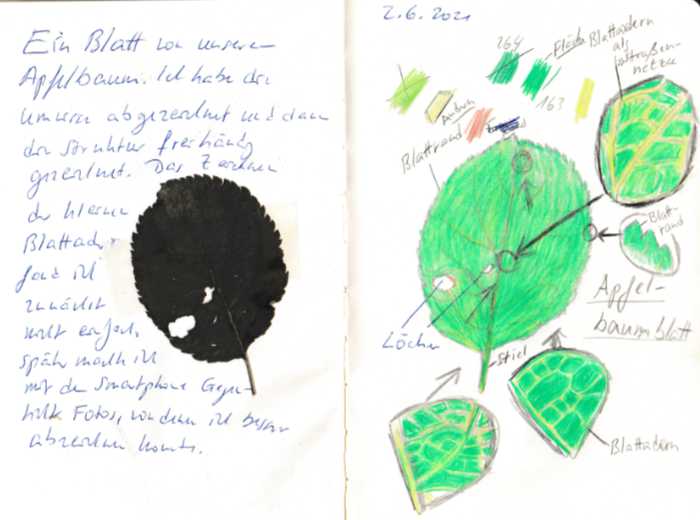 Ein Blatt von unserem
Apfelbaum. Ich habe den
Umriss abgezeichnet und dann
die Struktur freihändig
gezeichnet. Das Zeichnen
der kleinen
Blattadern
fand ich
zunächst
nicht einfach,
später machte ich
mit dem Smartphone
Fotos, von denen ich besser
abzeichnen konnte.
2.6.2021
264
163
Blattadern
als
Blattrand
Blatt-
rand
Apfel-
baumblatt
Löcher
Stiel
Blattadern